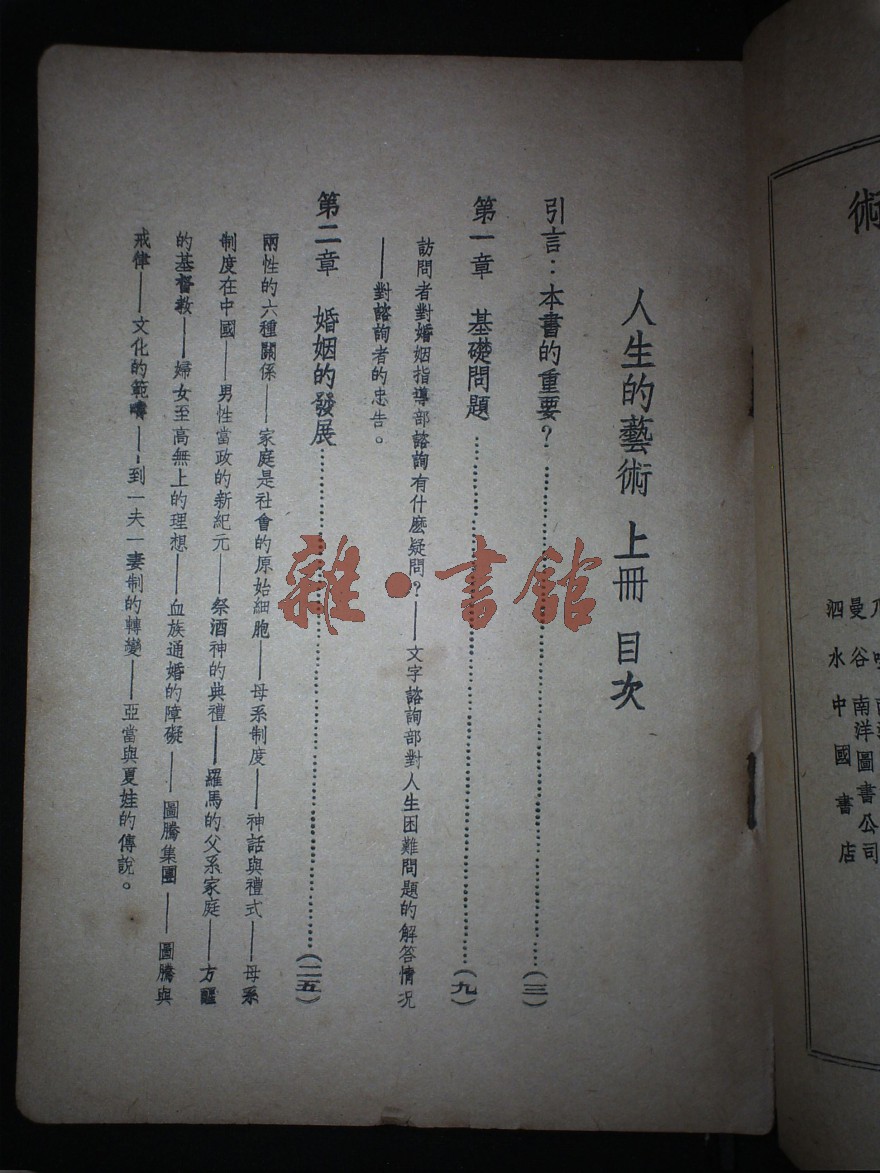 人生的藝術 上冊 目次
引言：本書的重要？……（三）
第一章 基礎問題……（九）
訪問者對婚姻指導部諮詢有什麽疑問？——文字諮詢部對人生困難問題的解答情况
——對諮詢者的忠告。
第二章 婚姻的發展……（二五）
兩性的六種關係——家庭是社會的原始細胞——母系制度——神話與禮式——母系
制度在中國——男性當政的新紀元——祭酒神的典禮——羅馬的父系家庭——方
的基督教——婦女至高無上的理想——血族通婚的障礙——圖騰集團——圖騰與
戒律——文化的範疇——到一夫一妻制的轉變——亞當與夏娃的傳說。
雜·書館
術
曼谷南洋圖書公司
泗水中國書店